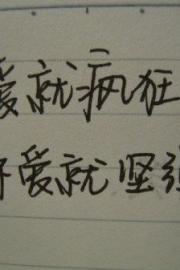 爱就疯狂
爱就坚